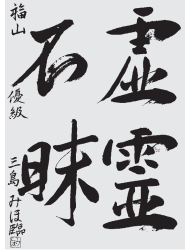 虚霊
不昧
福山 優級 三島みほ臨